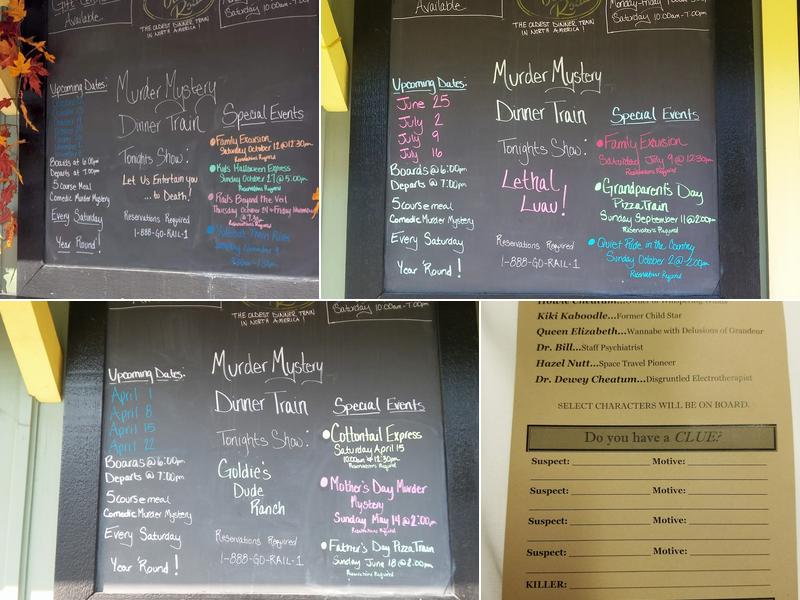 Gift Certificates
Available
THE OLDEST DINNER TRAIN
IN NORTH AMERICA!
Saturday 10:00am-7:00pm
Upcoming Dates:
Boards at 6:00pm
Departs at 7:00pm
5 course Meal
Comedic Murder Mystery
Every Saturday
Year Round!
Murder Mystery
Dinner Train
Tonights Show:
Let Us Entertain You
... to Death!
Reservations Required
1-888-GO-RAIL-1
Special Events
Family Excursion
Saturday October 12 @ 12:30pm
Reservations Required
Kids Halloween Express
Sunday October 27 @ 5:00pm
Reservations Required
Rails Beyond the Veil
Thursday October 24 - Friday November
@ 7:30
Reservations Required
Available
THE OLDEST DINNER TRAIN
IN NORTH AMERICA!
Monday-Friday
Saturday 10:00am-7:00pm
Upcoming Dates:
June 25
July 2
July 9
July 16
Boards @ 6:00pm
Departs @ 7:00pm
5 course meal
Comedic Murder Mystery
Every Saturday
Year 'Round!
Murder Mystery
Dinner Train
Tonights Show:
Lethal
Luau!
Reservations Required
1-888-GO-RAIL-1
Special Events
Family Excursion
Saturday July 9 @ 12:30pm
Reservations Required
Grandparents Day
Pizza Train
Sunday September 11 @ 2:00pm
Reservations Required
Quiet Ride in the Country
Sunday October 2 @ 2:00pm
Reservations Required
THE OLDEST DINNER TRAIN
IN NORTH AMERICA!
Saturday 10:00am-7:00pm
Upcoming Dates:
April 1
April 8
April 15
April 22
Boards @ 6:00pm
Departs @ 7:00pm
5 course meal
Comedic Murder Mystery
Every Saturday
Year 'Round!
Murder Mystery
Dinner Train
Tonights Show:
Goldie's
Dude
Ranch
Reservations Required
1-888-GO-RAIL-1
Special Events
Cottontail Express
Saturday April 15
10:00am & 12:30pm
Reservations Required
Mother's Day Murder
Mystery
Sunday May 14 @ 2:00pm
Reservations Required
Father's Day Pizza Train
Sunday June 18 @ 2:00pm
Reservations Required
Howie Cheatum...Owner of Whispering Winds
Kiki Kaboodle...Former Child Star
Queen Elizabeth...Wannabe with Delusions of Grandeur
Dr. Bill...Staff Psychiatrist
Hazel Nutt...Space Travel Pioneer
Dr. Dewey Cheatum...Disgruntled Electrotherapist
SELECT CHARACTERS WILL BE ON BOARD.
Do you have a CLUE?
Suspect: Motive:
Suspect: Motive:
Suspect: Motive:
Suspect: Motive:
KILLER: